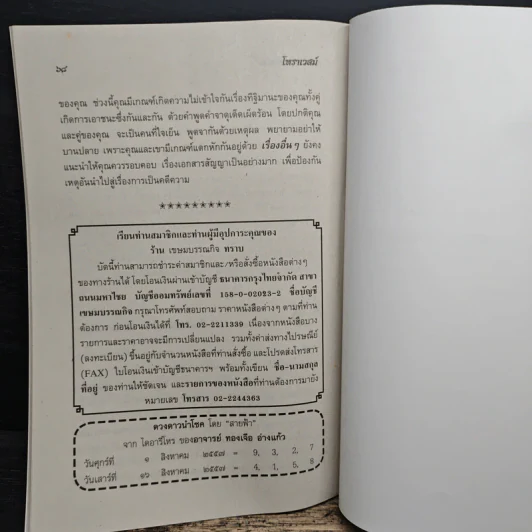 ๖๘
โหราเวสม์
ของคุณ ช่วงนี้คุณมีเกณฑ์เกิดความไม่เข้าใจกันเรื่องทิฐิมานะของคุณทั้งคู่
เกิดการเอาชนะซึ่งกันและกัน ด้วยคำพูดคำจาดุเด็ดเผ็ดร้อน โดยปกติคุณ
และคู่ของคุณ จะเป็นคนที่ใจเย็น พูดจากันด้วยเหตุผล พยายามอย่าให้
บานปลาย เพราะคุณและเขามีเกณฑ์แตกหักกันอยู่ด้วย เรื่องอื่น ๆ ยังคง
แนะนำให้คุณควรรอบคอบ เรื่องเอกสารสัญญาเป็นอย่างมาก เพื่อป้องกัน
เหตุอันนำไปสู่เรื่องการเป็นคดีความ
*********
เรียนท่านสมาชิกและท่านผู้มีอุปการะคุณของ
ร้าน เขษมบรรณกิจ ทราบ
บัดนี้ท่านสามารถชำระค่าสมาชิกและ/หรือสั่งซื้อหนังสือต่างๆ
ของทางร้านได้ โดยโอนเงินผ่านเข้าบัญชี ธนาคารกรุงไทยจำกัด สาขา
ถนนมหาไชย บัญชีออมทรัพย์เลขที่ 158-0-02023-2 ชื่อบัญชี
เขษมบรรณกิจ กรุณาโทรศัพท์สอบถาม ราคาหนังสือต่างๆ ตามที่ท่าน
ต้องการ ก่อนโอนเงินได้ที่ โทร. 02-2211339 เนื่องจากหนังสือบาง
รายการและราคาอาจจะมีการเปลี่ยนแปลง รวมทั้งค่าส่งทางไปรษณีย์
(ลงทะเบียน) ขึ้นอยู่กับจำนวนหนังสือที่ท่านสั่งซื้อ และโปรดส่งโทรสาร
(FAX) ใบโอนเงินเข้าบัญชีธนาคารฯ พร้อมทั้งเขียน ชื่อ-นามสกุล
ที่อยู่ ของท่านให้ชัดเจน และรายการของหนังสือที่ท่านต้องการมายัง
หมายเลข โทรสาร 02-2244363
ดวงดาวนำโชค โดย "สายฟ้า"
จาก ไดอารี่โหร ของอาจารย์ ทองเจือ อ่างแก้ว
วันศุกร์ที่ ๑ สิงหาคม ๒๕๕๗ = 9, 3, 2, 7
วันเสาร์ที่ ๑๖ สิงหาคม ๒๕๕๗ = 4, 1, 5, 8